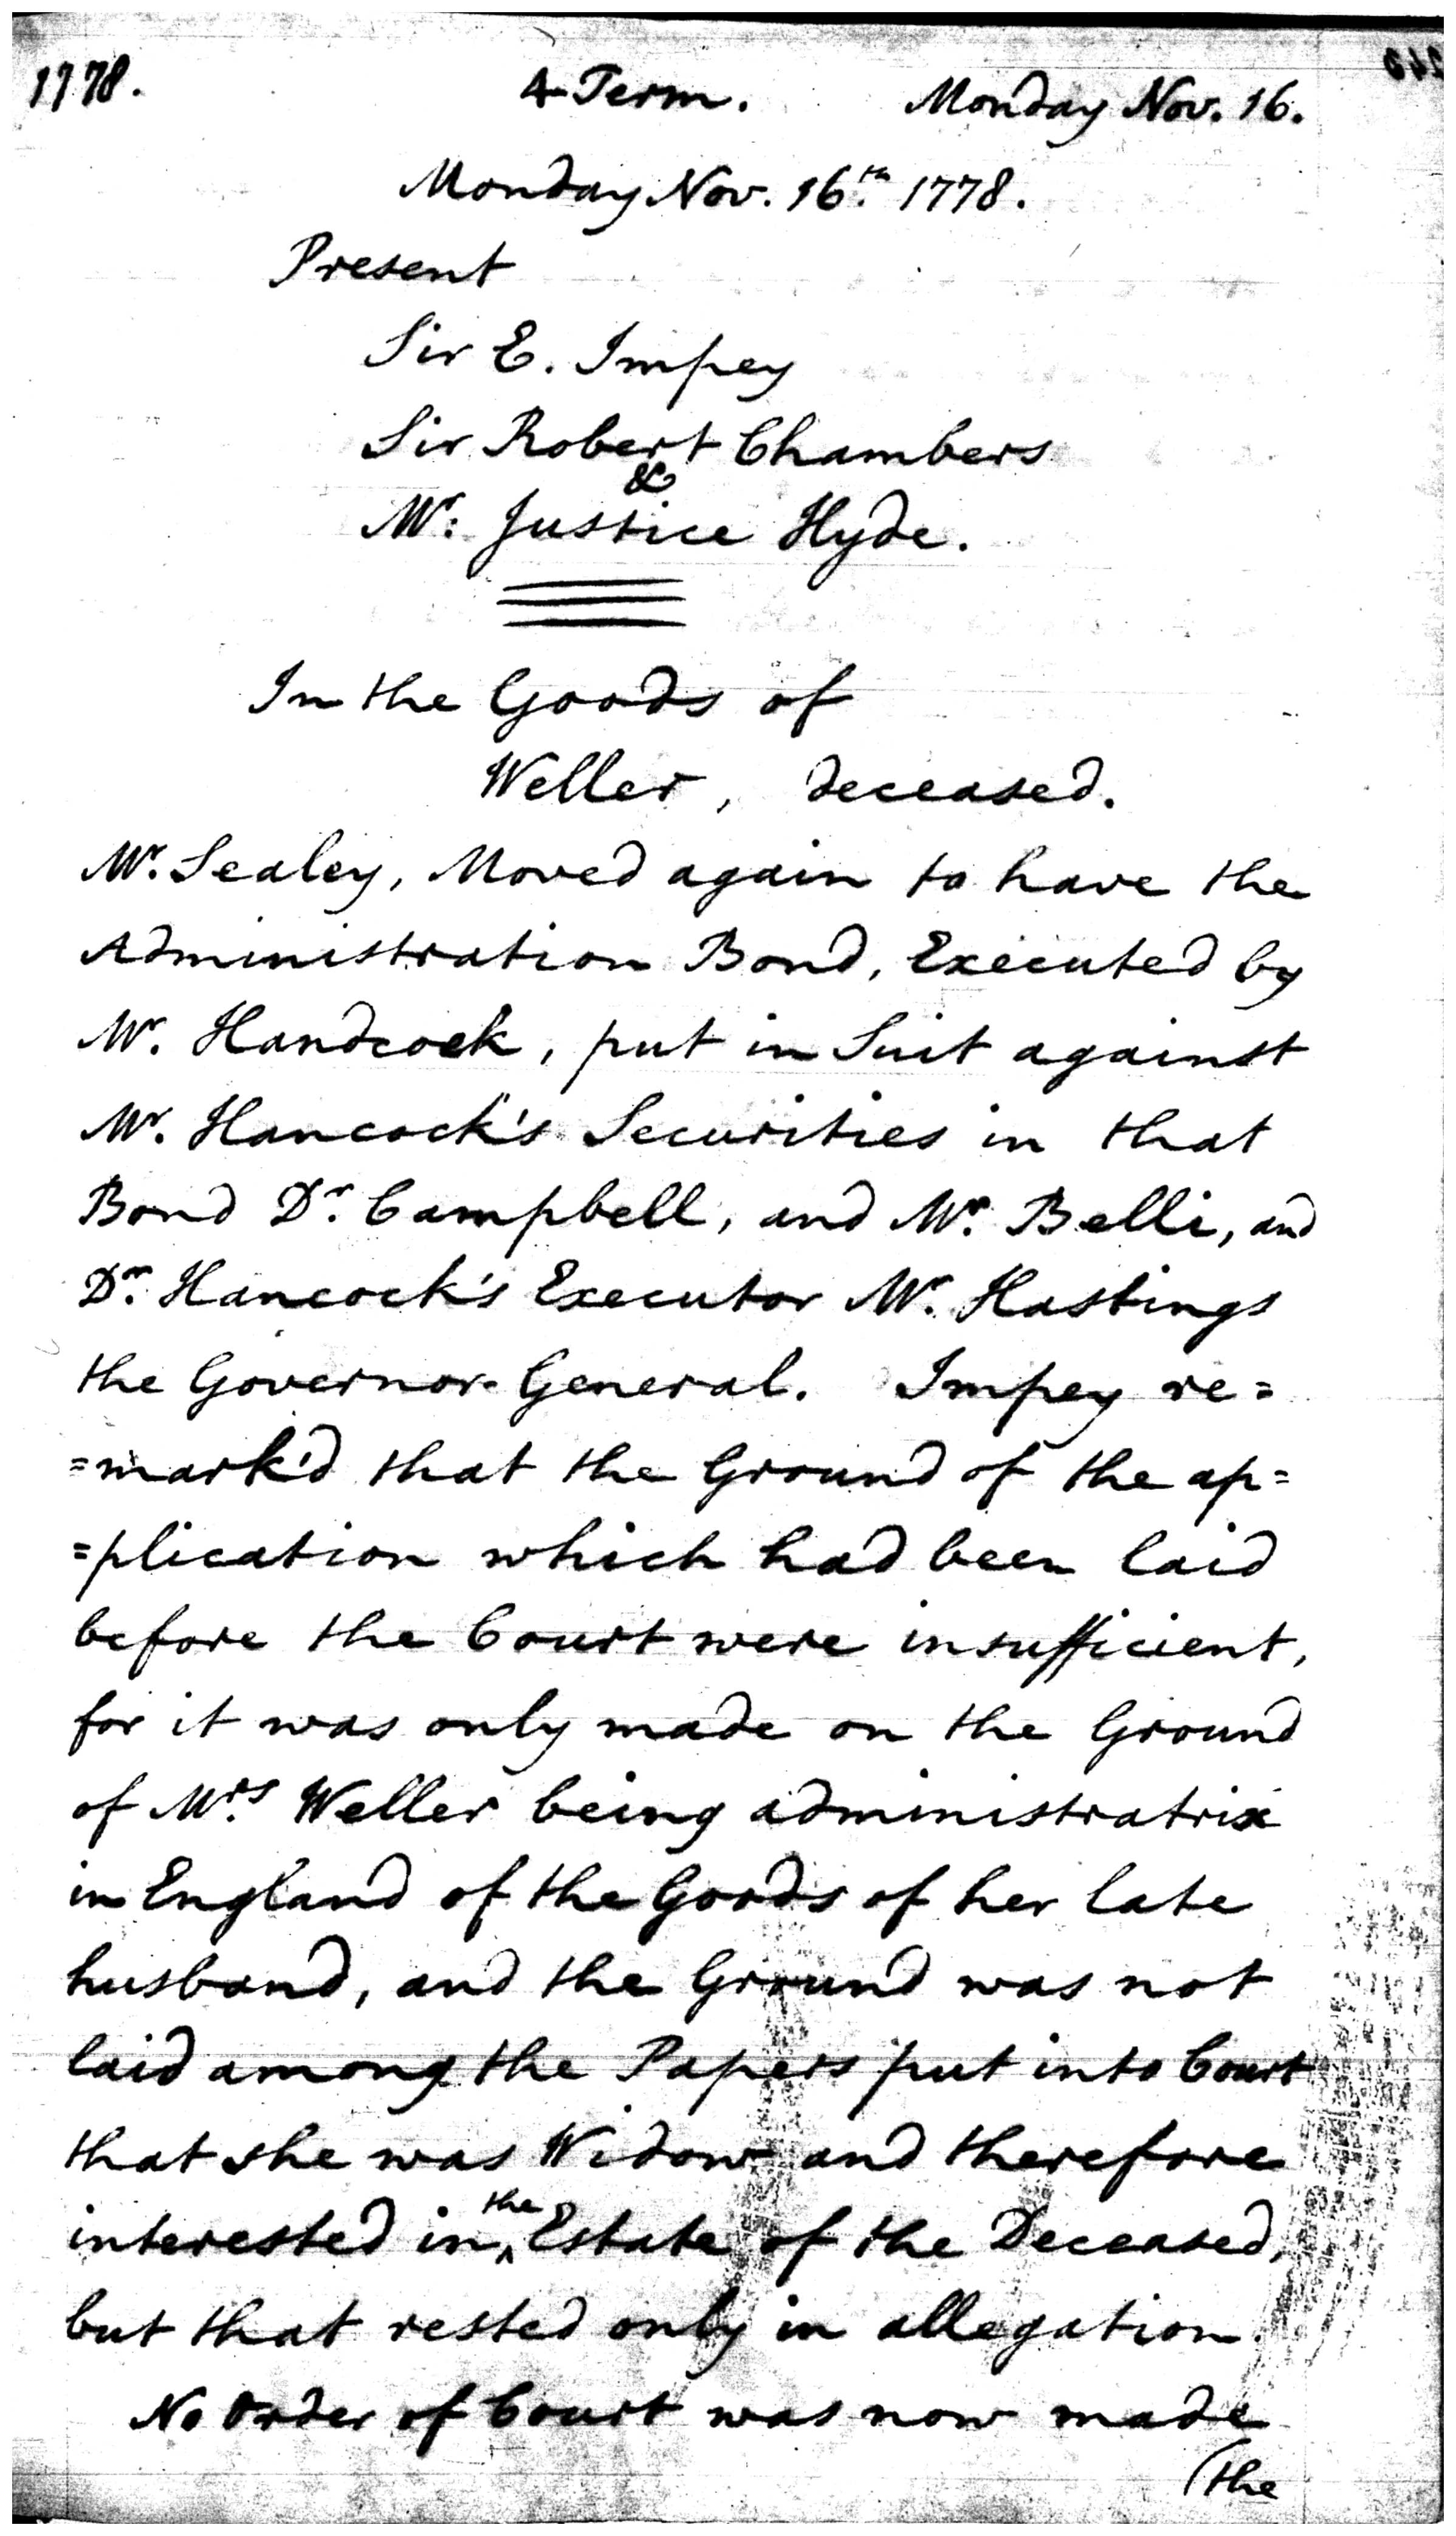 1778. 4 Term. Monday Nov. 16.
Monday Nov. 16.th 1778.
Present
Sir E. Impey
Sir Robert Chambers
&
Mr. Justice Hyde.
In the Goods of
Weller, deceased.
Mr. Sealey, Moved again to have the
Administration Bond, Executed by
Mr. Handcock, put in Suit against
Mr. Hancock's Securities in that
Bond Dr. Campbell, and Mr. Belli, and
Dr. Hancock's Executor Mr. Hastings
the Governor General. Impey re=
=mark'd that the Ground of the ap=
=plication which had been laid
before the Court were insufficient,
for it was only made on the Ground
of Mrs. Weller being administratrix
in England of the Goods of her late
husband, and the Ground was not
laid among the Papers put into Court
that she was Widow and therefore
interested in ^the Estate of the Deceased,
but that rested only in allegation.
No Order of Court was now made
(the